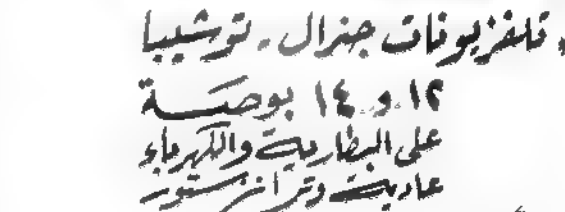 تلفزيونات جنرال - توشيبا
١٢ و ١٤ بوصة
على البطارية والكهرباء
عادية وترانزستور